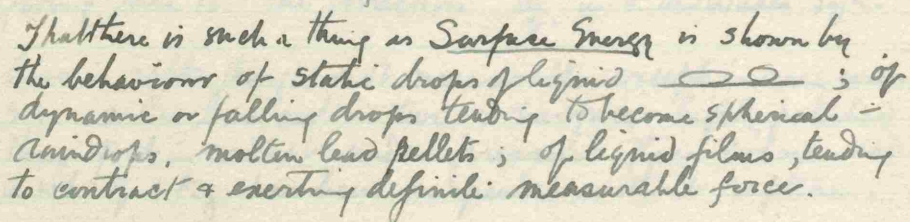 That there is such a thing as Surface Energy is shown by
the behaviour of static drops of liquid ; of
dynamic or falling drops tending to become spherical –
raindrops, molten lead pellets ; of liquid films, tending
to contract & exerting definite measurable force.